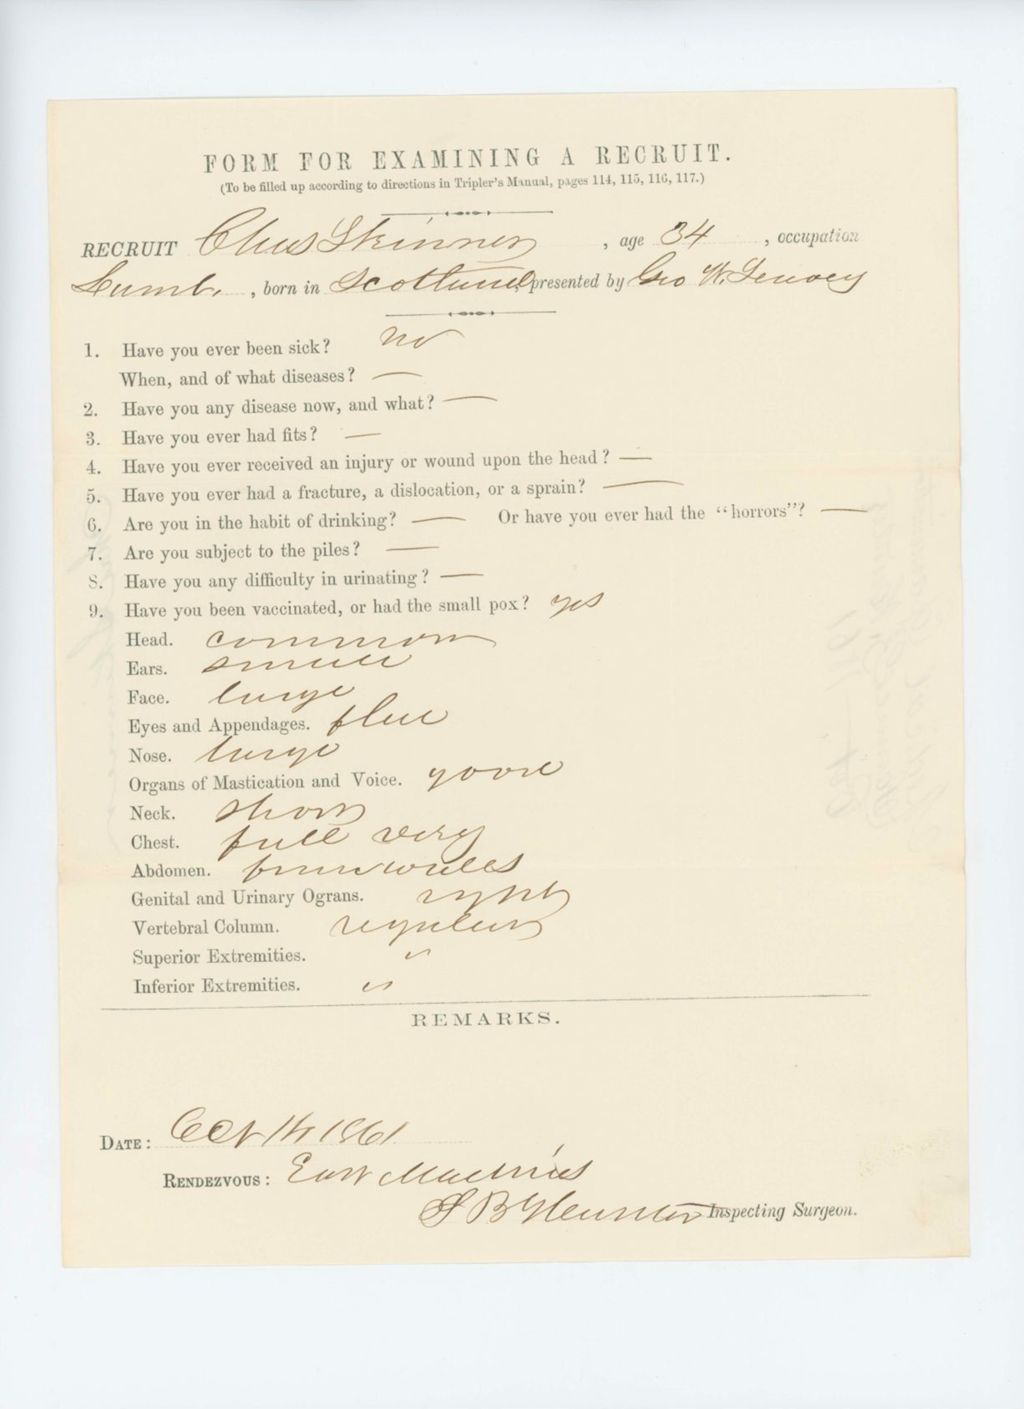 FORM FOR EXAMINING A RECRUIT.
(To be filled up according to directions in Tripler's Manual, pages 114, 115, 116, 117.)
RECRUIT Chas Skinner , age 34 , occupation
Lumbr , born in Scotland, presented by Geo W.
1. Have you ever been sick? no
When, and of what diseases? —
2. Have you any disease now, and what? —
3. Have you ever had fits? —
4. Have you ever received an injury or wound upon the head? —
5. Have you ever had a fracture, a dislocation, or a sprain? —
6. Are you in the habit of drinking? — Or have you ever had the "horrors"? —
7. Are you subject to the piles? —
8. Have you any difficulty in urinating? —
9. Have you been vaccinated, or had the small pox? yes
Head. common
Ears. small
Face. large
Eyes and Appendages. blue
Nose. large
Organs of Mastication and Voice. good
Neck. short
Chest. full very
Abdomen. firm walls
Genital and Urinary Ograns. right
Vertebral Column. regular
Superior Extremities. "
Inferior Extremities. "
REMARKS.
DATE: Oct 1861
RENDEZVOUS: East Machias
S B Hunter Inspecting Surgeon.